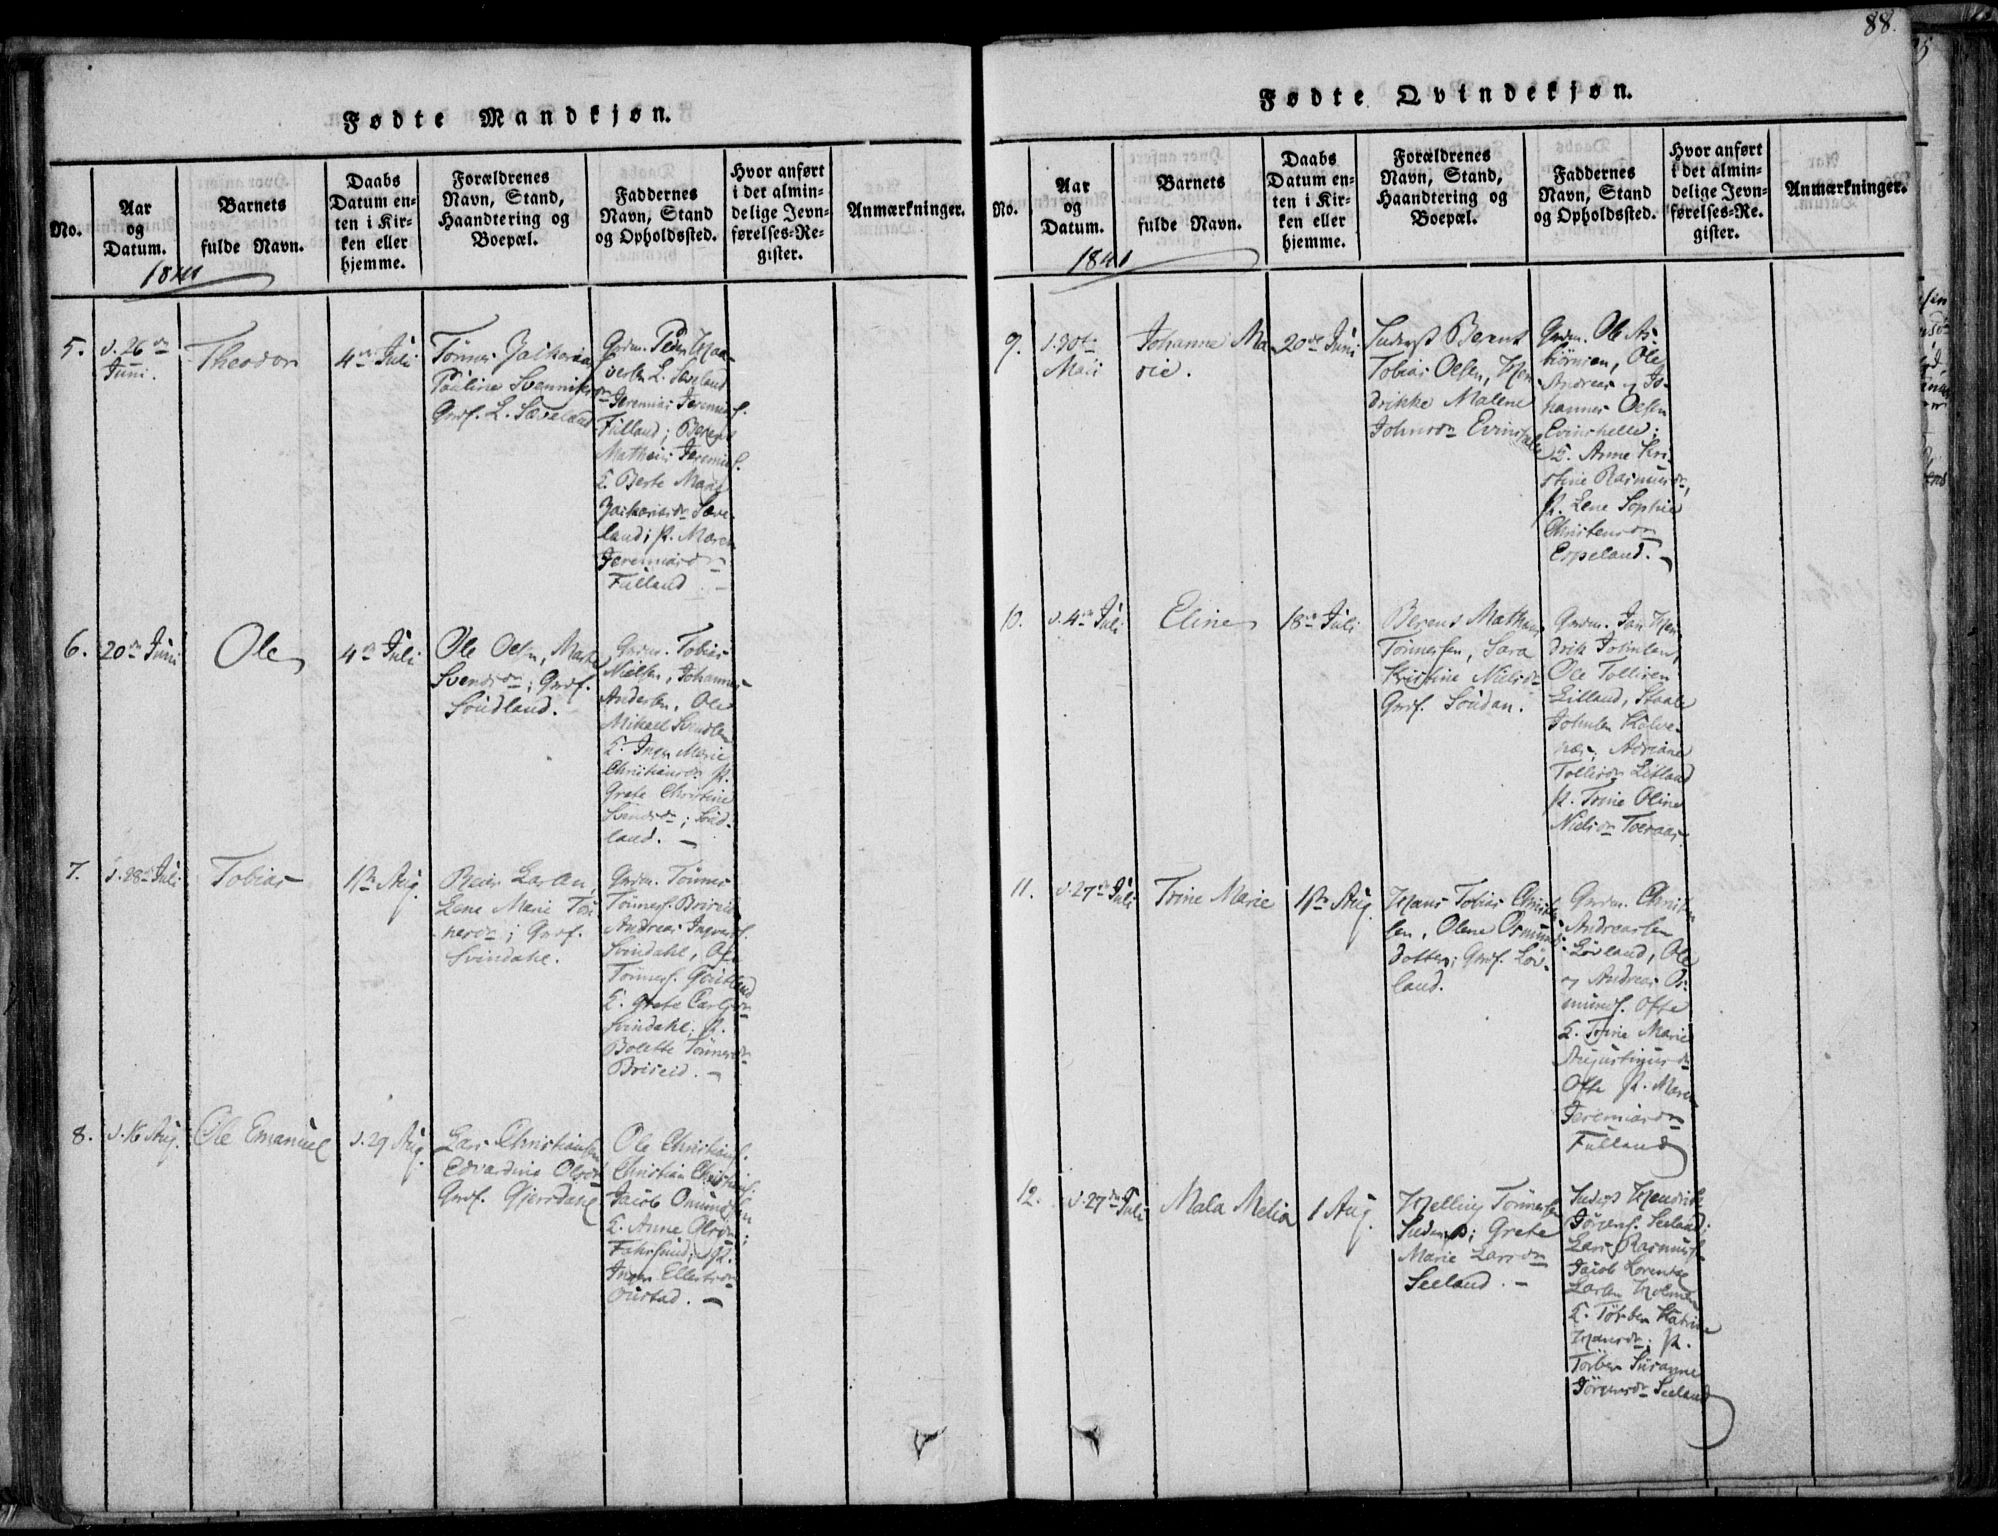 88.
Fødte Mandkjøn.
No.
Aar
og
Datum.
Barnets
fulde Navn.
Daabs
Datum en-
ten i Kir-
ken eller
hjemme.
Forældrenes
Navn, Stand,
Haandtering og
Boepæl.
Faddernes
Navn, Stand
og Opholdssted.
Hvor anført
i det almin-
delige Jevn-
førelses-Re-
gister.
Anmærkninger.
1841
5.
d. 26de
Juni.
Theodor
4de Juli
Tönnes Zacharias
Pauline Svennings
Grdf. L. Sæveland
Grdm. Peder
L. Sæveland
Jeremias Jeremias.
Fulland; Berent
Mathias Jeremias.
L. Berte Marie
Zachariasdr Sæve-
land; p. Maren
Jeremiasdr
Fulland
6.
20de Juni
Ole
4de Juli
Ole Olsen, Marte
Svendsdr; Grdf.
Söudland.
Grdm. Tobias
Nielsen, Johannes
Andersen, Ole
Mikael Svendsen
L. Inger Marie
Christiansdr p.
Grete Christine
Svendsdr; Söud-
land. –
7.
d. 28de Juli
Tobias
1ste Aug.
Reier Larsen,
Lene Marie Tön-
nesdr; Grdf.
Svindahl.
Grdm. Tönnes
Tönnes. Briseid
Andreas
Svindahl, Ole
Tönnes.
L. Grete Carlsdr
Svindahl; p.
Bolette Tönnesdr
Briseid. –
8.
d. 16 Aug.
Ole Emanuel
d. 29 Aug.
Lars Christiansen
Edvardine Olsdr
Grdf. Gjersdahl
Ole Christians.
Christian Christians.
Jacob Omundsen
L. Anne Olsdr;
Fahrsund; p.
Inger
Oustad. –
Fødte Qvindekjøn.
No.
Aar
og
Datum.
Barnets
fulde Navn.
Daabs
Datum en-
ten i Kir-
ken eller
hjemme.
Forældrenes
Navn, Stand,
Haandtering og
Boepæl.
Faddernes
Navn, Stand
og Opholdssted.
Hvor anført
i det almin-
delige Jevn-
førelses-Re-
gister.
Anmærkninger.
1841
9.
Johanne Ma-
rie.
20de Juni
Berent
Tobias Olsen, Hen-
drikke Malene
Johnsdr
Grdm. Ole As-
björnsen, Ole
Andreas og Jo-
hannes Olsen
L. Anne Kri-
stine Rasmusdr,
p. Lene Sophie
Christensdr
Espeland. –
10.
d. 4de Juli
Eline
18de Juli
Berent Mathias
Tönnessen, Sara
Kristine Nielsdr
Grdf. Söudan.
Grdm. Jan Hen-
drik Johnsen,
Ole Tollisen
Lilland, Staale
Johnsen
Adriane
Tollisdr
p. Trine Oline
Nielsdr
11.
d. 27de Juli
Trine Marie
1ste Aug.
Hans Tobias Christen-
sen, Olene Osmunds-
dotter; Grdf. Löv-
land.
Grdm. Christen
Andreassen
Lövland, Ole
og Andreas Os-
munds. Ofte
L. Trine Marie
Augustinusdr
Ofte p. Maren
Jeremiasdr
Fulland
12.
d. 27de Juli
Mala Melia
1 Aug.
Helling Tönnessen
Grete
Marie Larsdr
Seeland. –
Hendrik
Jörgens. Seeland;
Lars Rasmus.
Jacob Lorentz
Larsen Holmen
L. Torber Katrine
Hansdr; p.
Torber Susanne
Jörgensdr Seeland